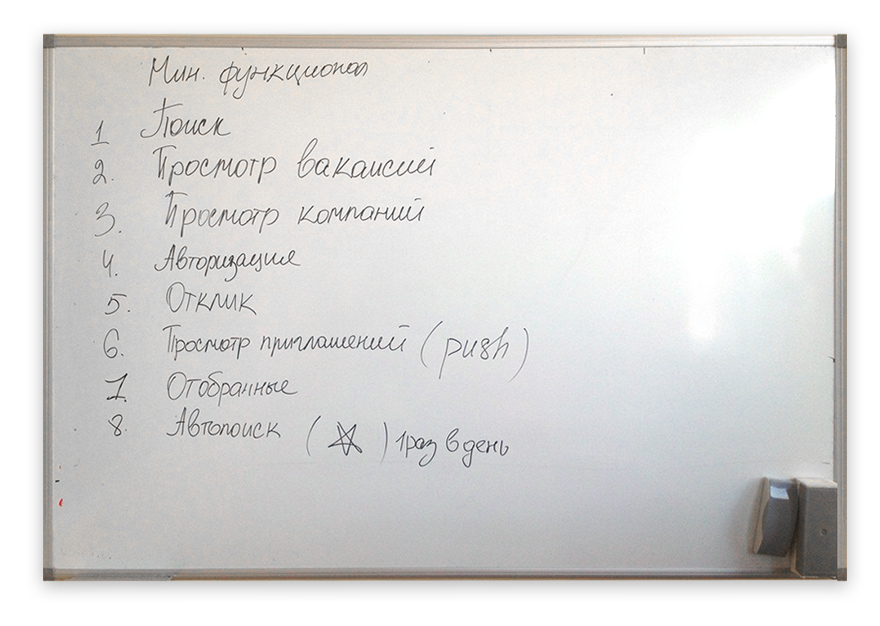 Мин. функционал
1 Поиск
2. Просмотр вакансий
3. Просмотр компаний
4. Авторизация
5. Отклик
6. Просмотр приглашений (push)
7. Отобранные
8. Автопоиск (☆) 1раз в день